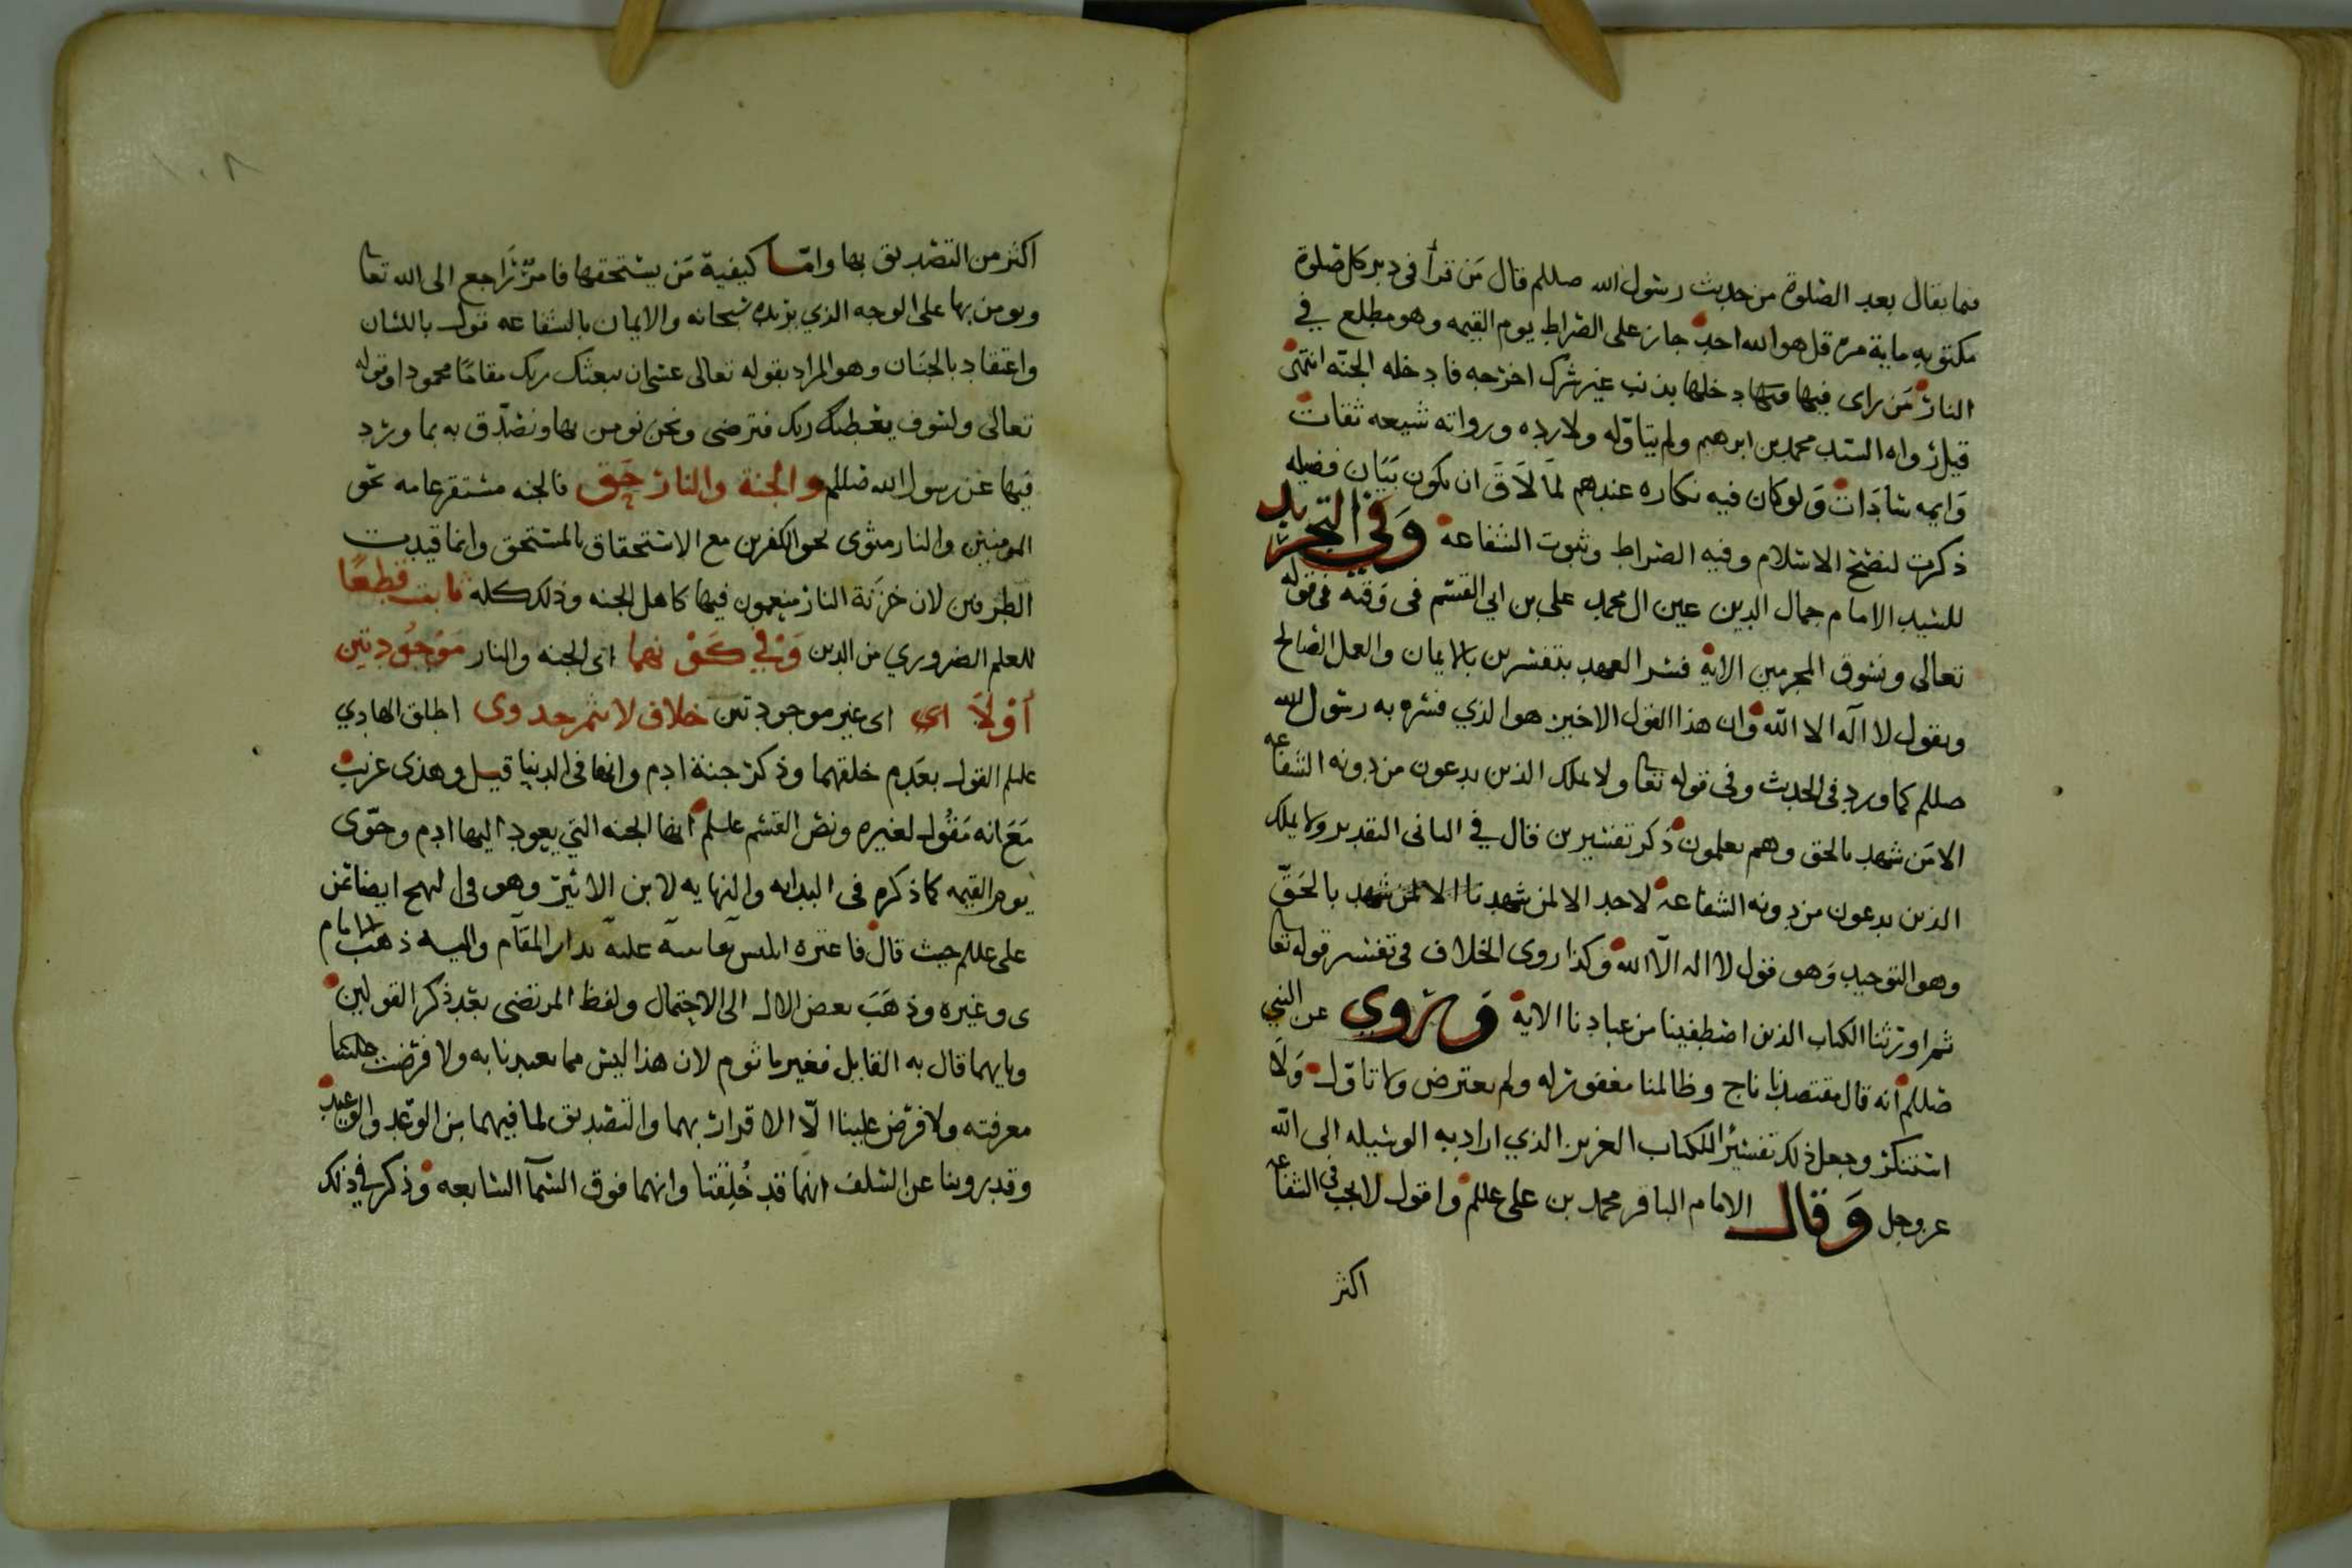 فيما يقال بعد الصلوة من حديث رسول الله صللم قال من قرأ في دبر كل صلوة
مكتوبه ماية مرة قل هو الله احد جاز على الصراط يوم القيمه وهو مطلع في
النار من راى فيها دخلها بذنب غير شرك اخرجه فادخله الجنة انتهى
قيل رواه السيد محمد بن ابرهيم ولم يتاوله ولا رده ورواته شيعه ثقات
وايمه سادات ولو كان فيه نكاره عندهم لما لاق ان يكون بيان فضيله
ذكرت لنصح الاسلام وفيه الصراط وثبوت الشفاعة وفي التجريد
للسيد الامام جمال الدين عين ال محمد علي بن ابي القسم في وقته في قوله
تعالى ونسوق المجرمين الاية فسر العهد بتفسرين بالايمان والعمل الصالح
وبقول لا اله الا الله وان هذا القول الاخير هو الذي فسره به رسول الله
صللم كما ورد في الحديث وفي قوله تعا ولا يملك الذين يدعون من دونه الشفاعه
الا من شهد بالحق وهم يعلمون ذكر تفسيرين قال في الثاني التقدير ولا يملك
الذين يدعون من دونه الشفاعة لاحد الا لمن شهد بالحق
وهو التوحيد وهو قول لا اله الا الله وكذا روى الخلاف في تفسير قوله تعا
ثم اورثنا الكتاب الذين اصطفينا من عبادنا الاية وروي عن النبي
صللم انه قال مقتصدنا ناج وظالمنا مغفور له ولم يعترض ولا تاول ولا
استنكر وجعل ذلك تفسير للكتاب العزيز الذي اراد به الوسيله الى الله
عز وجل وقال الامام الباقر محمد بن علي عللم واقول لا يجب في الشفاعه
اكثر
١٠٨
اكثر من التصديق بها واما كيفية من يستحقها فامر راجع الى الله تعا
ويومن بها على الوجه الذي يريده سبحانه والايمان بالشفاعه قول باللسان
واعتقاد بالجنان وهو المراد بقوله تعالى عسى ان يبعثك ربك مقاما محمودا وقوله
تعالى ولسوف يعطيك ربك فترضى ونحن نومن بها ونصدق به بما ورد
فيها عن رسول الله صللم والجنة والنار حق فالجنه مستقر عامه نحو
المومنين والنار مثوى نحو الكفرين مع الاستحقاق بالمستحق وانما قيدت
الطرفين لان خزنة النار منعمون فيها كاهل الجنه وذلك كله ثابت قطعا
للعلم الضروري من الدين وفي كونهما اى الجنه والنار موجودتين
أو لا اي اى غير موجودتين خلاف لا ثمر جدوى اطلق الهادي
علىلم القول بعدم خلقهما وذكر جنة ادم وانها في الدنيا قيل وهذى غريب
مع انه مقول لغيره ونص القسم علىلم انها الجنه التي يعود اليها ادم وحوى
يوم القيمه كما ذكره في البدايه والنهايه لابن الاثير وهو في النهج ايضا عن
علي عللم حيث قال فاغتره ابليس نفاسة عليه بدار المقام واليه ذهب الامام
ى وغيره وذهب بعض الال الى الاحتمال ولفظ المرتضى بعد ذكر القولين
وبايهما قال به القايل فغير ماثوم لان هذا ليس مما تعبدنا به ولا فرضت علينا
معرفته ولا فرض علينا الا الاقرار بهما والتصديق لما فيهما من الوعد والوعيد
وقد روينا عن السلف انهما قد خلقتا وانهما فوق السمآ السابعه وذكر في ذلك